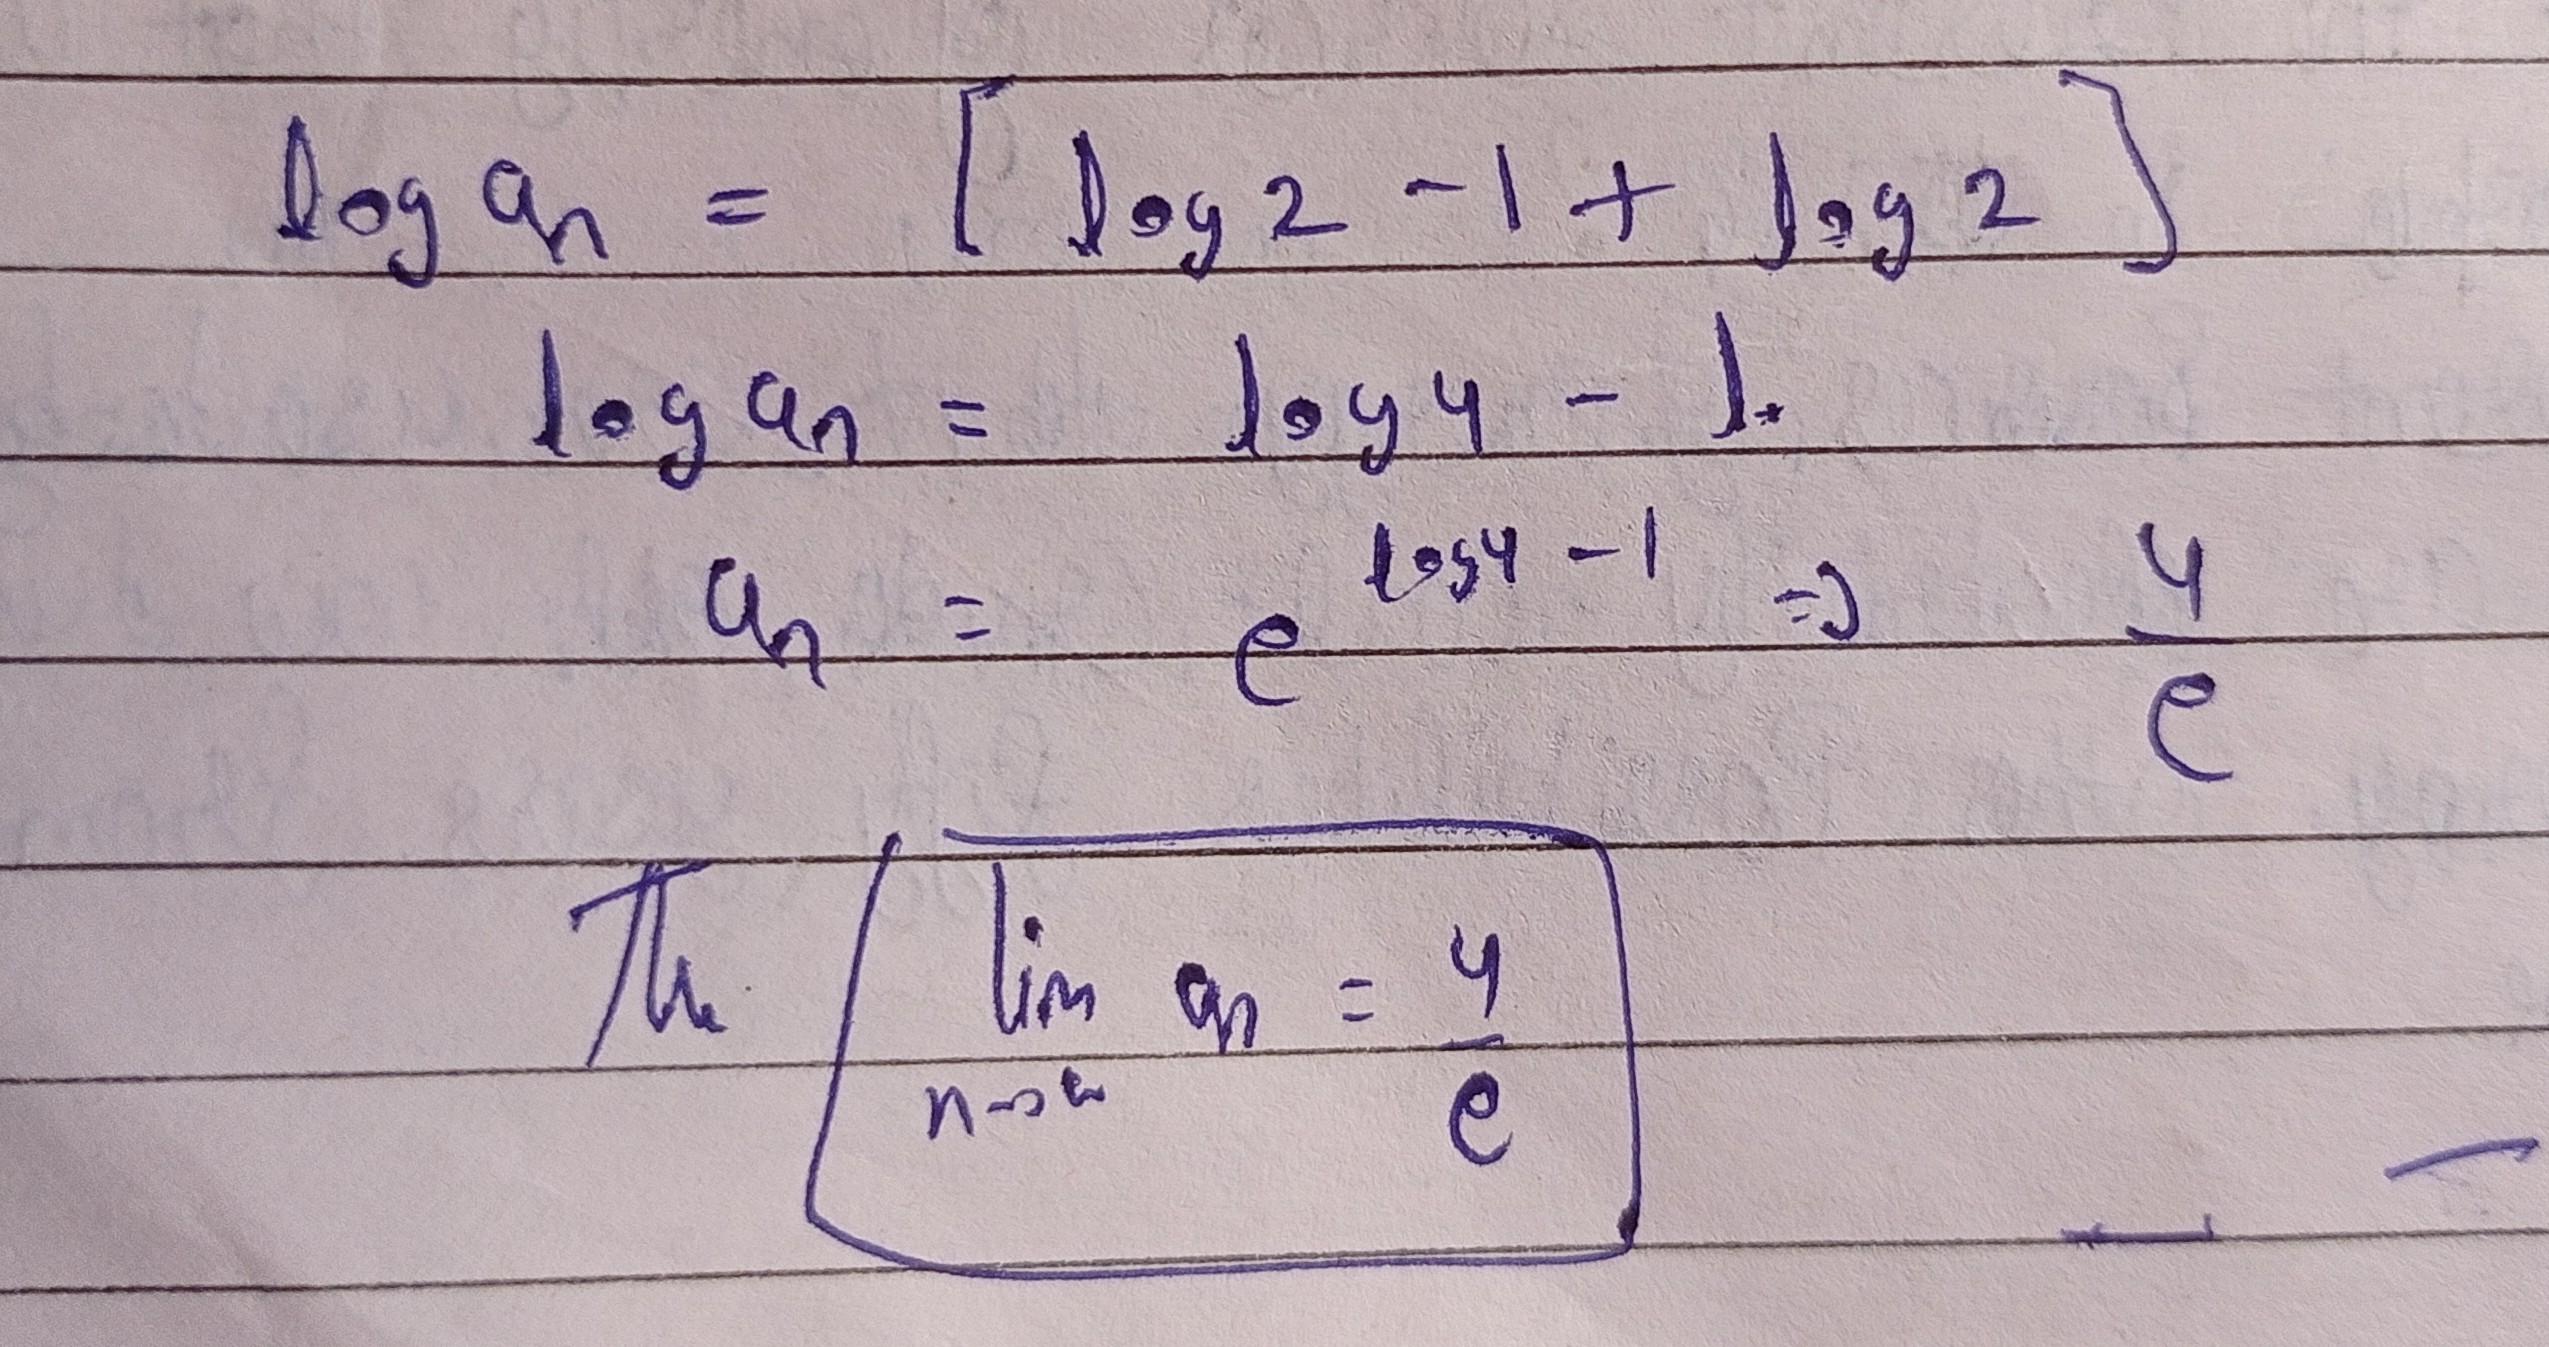 log aₙ = [ log 2 - 1 + log 2 ]
log aₙ = log 4 - 1.
aₙ = e^{log 4 - 1} ⇒ 4/e
Th lim_{n→∞} aₙ = 4/e